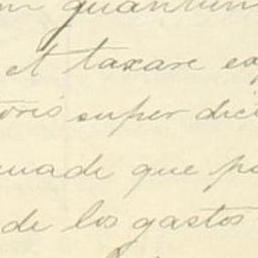 m quantum
et taxare ex
oris super dict
uade que po
de los gastos